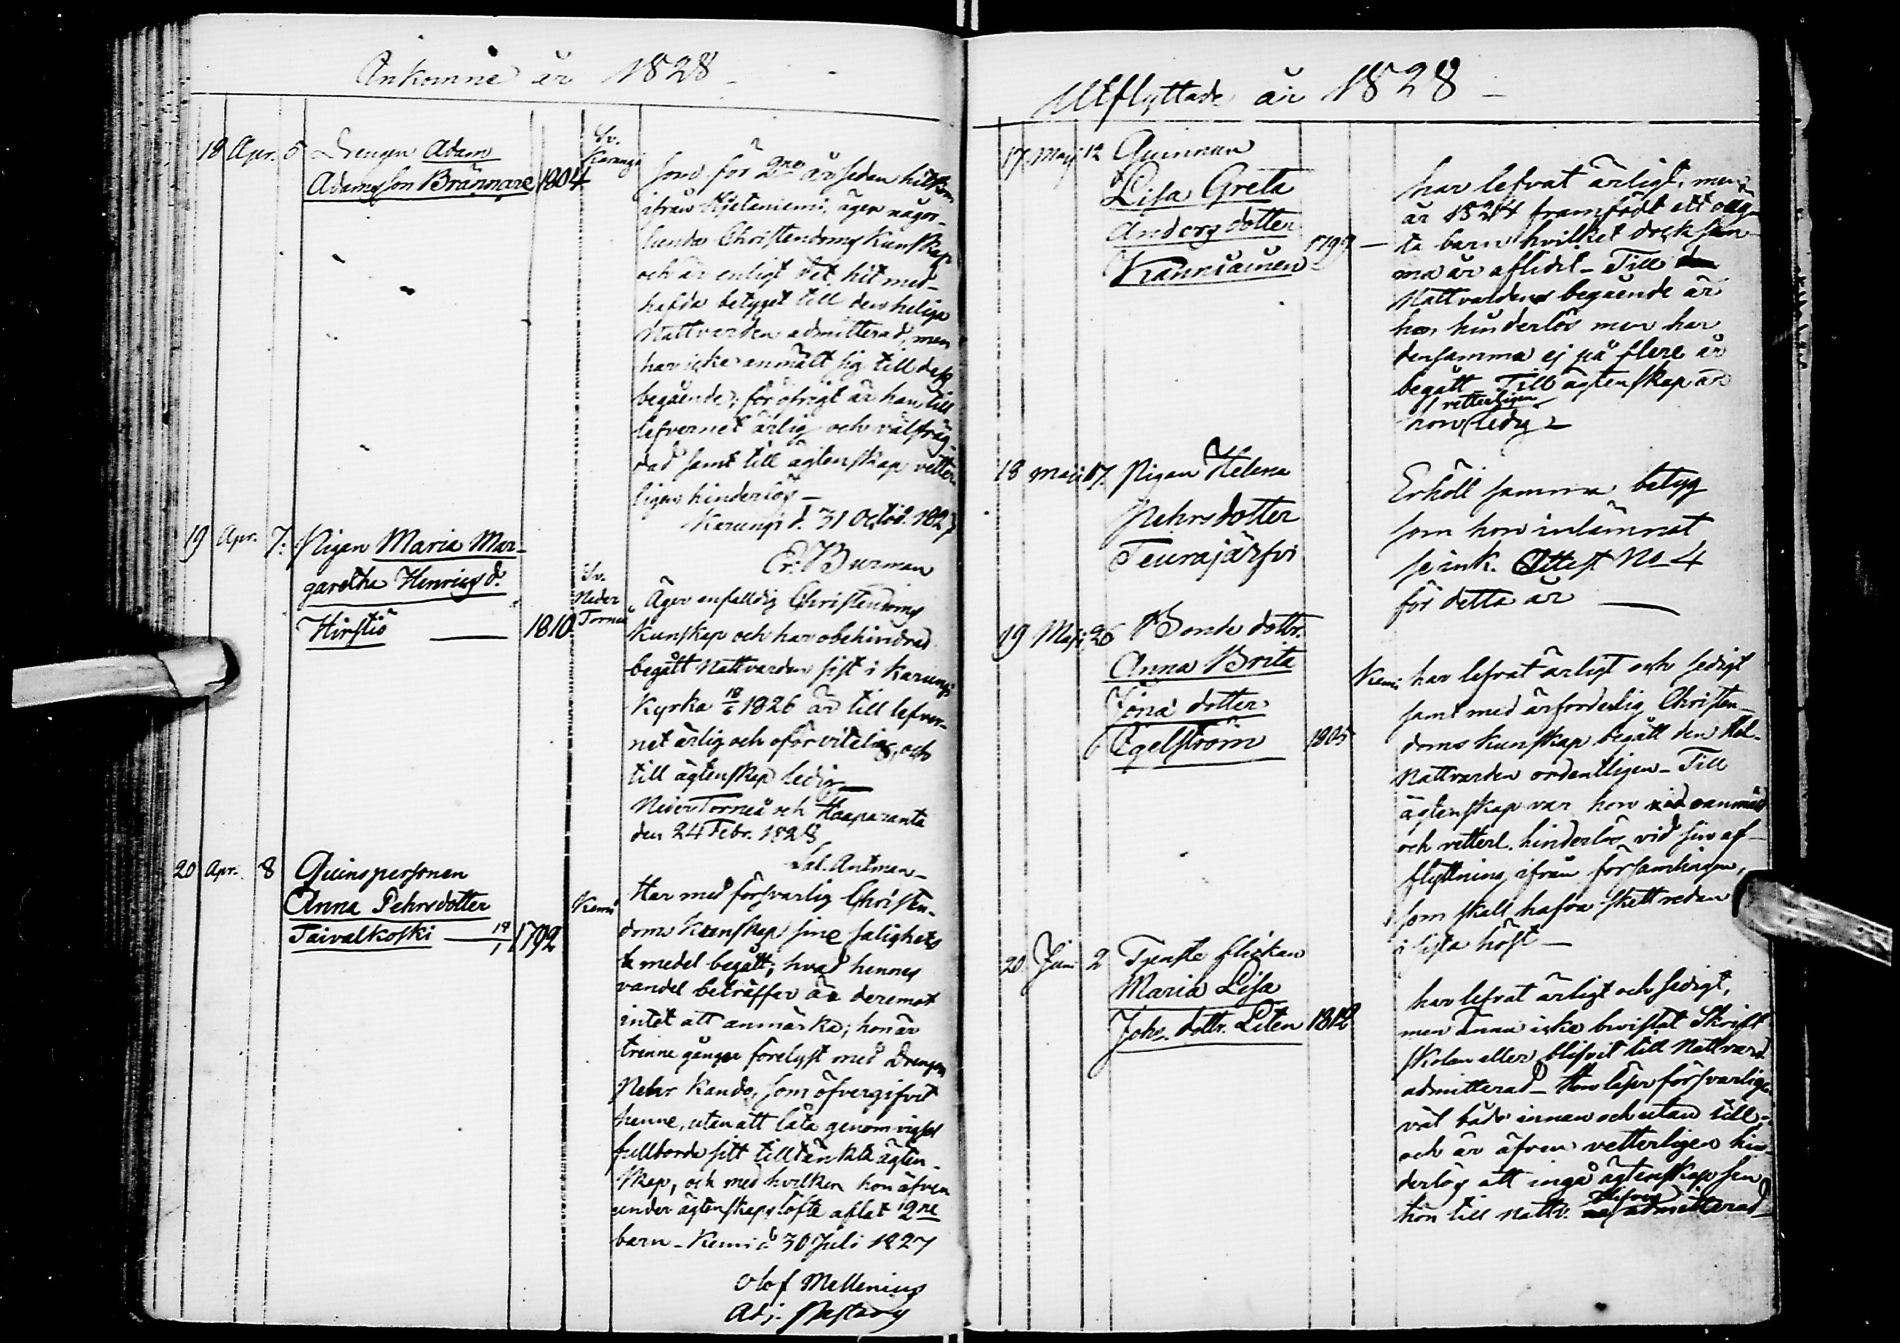 Inkomne år 1828
18 Apr. 5 Drengen Adam
Adamsson Brännare 1804
Sv.
Karungi
som för 2ne år sedan hitkom
ifrån Hjetaniemi, äger någor-
lunda Christendoms Kunskap
och är enligt det hit med-
hafda betyget till den heliga
Nattvarden admitterad, men
har icke anmält sig till dess
begående; för öfrigt är han till
lefvernet ärlig och välfräg-
dad samt till ägtenskap vetter-
ligen hinderlös –
Karungi d. 31 Octob. 1827
Er. Burman
19 Apr. 7. Pigan Maria Mar-
garetha Henrics d.
Hirstiö 1810
Sv.
Neder
Torneå
Äger enfalldig Christendoms
Kunskap och har obehindrad
begått Nattvarden sist i Karungi
Kyrka 18/6 1826 är till lefver-
net ärlig och oförvitelig, och
till ägtenskap ledig –
Neder Torneå och Haaparanta
den 24 Febr. 1828
Sal. Antman –
20 Apr. 8 Qvinspersonen
Anna Pehrsdotter
Taivalkoski 18/1 1792
Kemi
Har med försvarlig Christen-
doms Kunskap sine salighets
medel begått; hvad hennes
vandel beträffar är deremot
intet att anmärka; hon är
trenne gånger förelyst med Drengen
Pehr Kando, som öfvergifvit
henne, utan att låta genom vigsel
fullborda sitt tilltänkta ägten-
skap, och med hvilken hon äfven
under ägtenskaps löfte aflat 2ne
barn – Kemi d. 30 Juli 1827
Olof Mellenius
Adj. Pastoris
Utflyttade år 1828 –
17. Maji 12 Qvinnan
Lisa Greta
Anders dotter
Kanniainen 1797 –
har lefvat ärligt, men
år 1824 framfödt ett oäg-
ta barn hvilket dock sam-
ma år aflidit – Till
Nattvardens begående är
hon hinderlös men har
densamma ej på flere år
begått – Till ägtenskap är
hon vetterligen ledig –
18 Maji 17. Pigan Helena
Pehrsdotter
Teurajärfvi
Erhöll samma betyg
som hon inlämnat
se ink. Attest No 4
för detta år –
19 Maji 26 Bonde dottr.
Anna Brita
Jöns dotter
Egelström 1805
Kemi
har lefvat ärligt och sedigt
samt med ärforderlig Christen-
doms kunskap begått den Hel.
Nattvarden ordentligen – Till
ägtenskap var hon oanmäld
och vetterl. hinderlös vid sin af-
flyttning ifrån församlingen,
som skall hafva skett redan
i sista höst –
20 Juni 2 Tjenste flickan
Maria Lisa
Johs. dottr. Liten 1812
har lefvat ärligt och sedigt,
men ännu icke bevistat Skrift
skolan eller blifvit till Nattvard
admitterad – Hon läser försvarligen
väl både innan och utan till,
och är äfven vetterligen hin-
derlös att ingå ägtenskap sen
hon till nattv. blifvit admitterad –